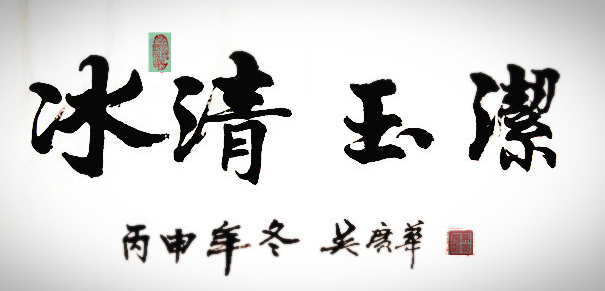 冰清玉潔
丙申年冬 吴廣華